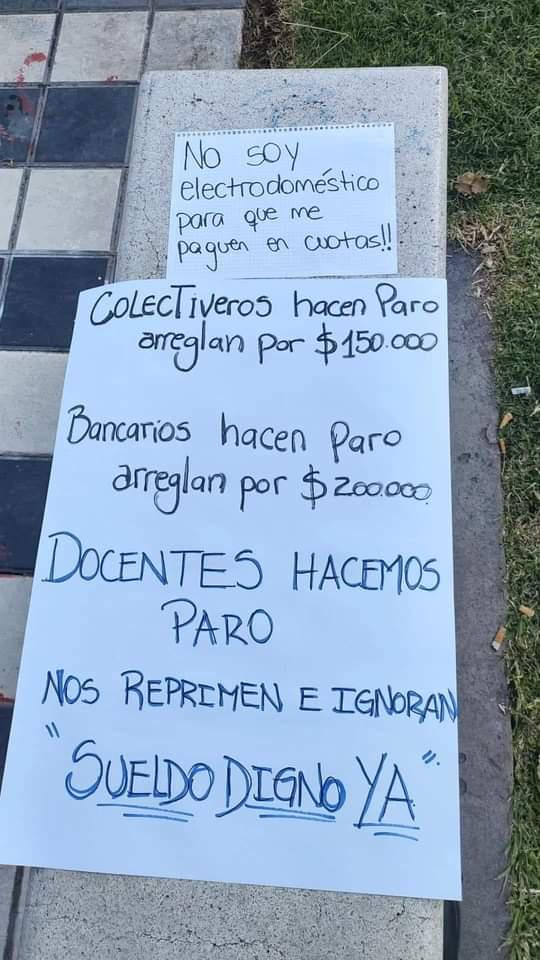 No soy
electrodoméstico
para que me
paguen en cuotas!!
COLECTiveros hacen Paro
arreglan por $150.000
Bancarios hacen Paro
arreglan por $200.000
DOCENTES HACEMOS
PARO
NOS REPRIMEN E IGNORAN
"SUELDO DIGNO YA".